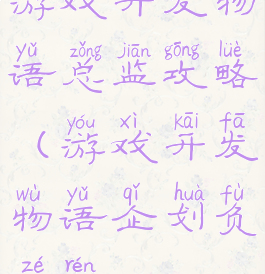 游戏开发物
yǔ zǒng jiān gōng lüè
语总监攻略
yóu xì kāi fā
（游戏开发
wù yǔ qǐ huà fù
物语企划负
zé rén